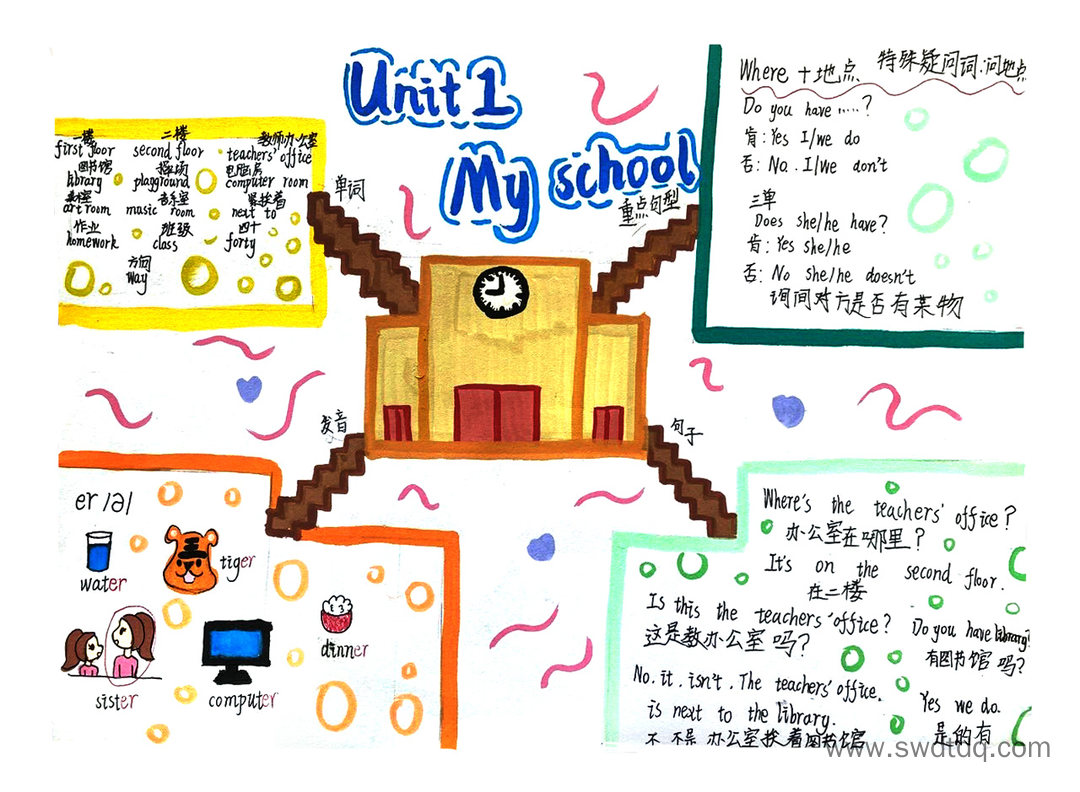 Unit 1
My school
单词
一楼 二楼 教师办公室
first floor second floor teachers' office
图书馆 操场 电脑房
library playground computer room
美术室 音乐室 紧挨着
art room music room next to
作业 班级 四十
homework class forty
方向
way
重点句型
Where + 地点 特殊疑问词:问地点
Do you have ……?
肯: Yes I/we do
否: No . I/we don't
三单
Does she/he have?
肯: Yes she/he
否: No she/he doesn't
询问对方是否有某物
发音
er /ə/
water
tiger
sister
computer
dinner
句子
Where's the teachers' office?
办公室在哪里?
It's on the second floor.
在二楼
Is this the teachers' office?
这是教办公室吗?
No. it . isn't . The teachers' office.
is next to the library.
不 不是 办公室挨着图书馆
Do you have library?
有图书馆吗?
Yes we do.
是的有
www.swdtdq.com